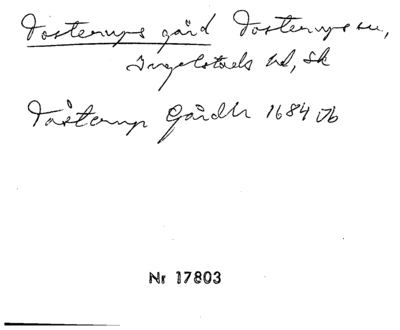 Tosterups gård Tosterups sn,
Ingelstads hd, Sk
Tåsterup Gårdh 1684 Jb
Nr 17803